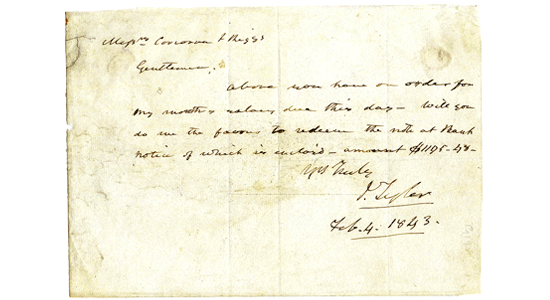 Messrs Corcoran & Riggs
Gentlemen,
Above you have an order for
my month's salary due this day – Will you
do me the favour to redeem the note at Bank
notice of which is enclosed – amount $1195-48-
Yrs Truly
J. Tyler
Feb. 4. 1843.